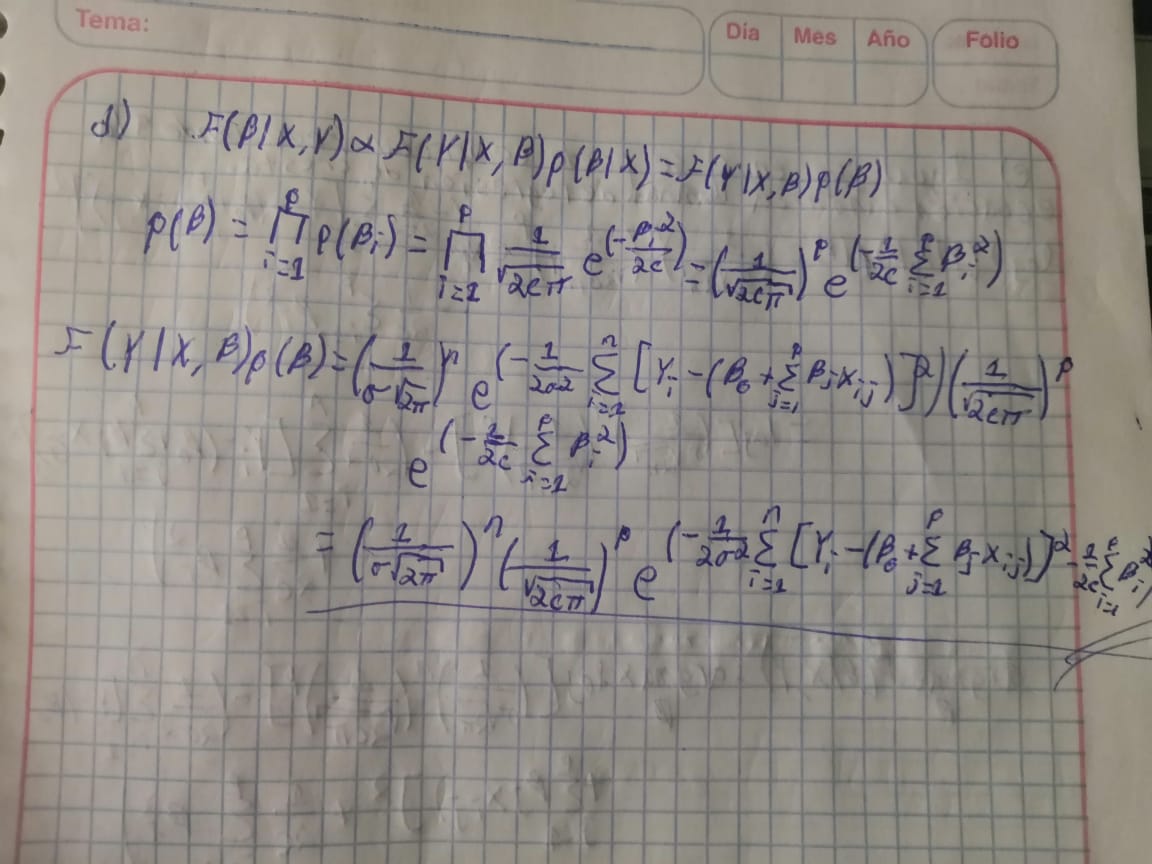 Tema:
Día Mes Año Folio
d) F(β|X,Y) ∝ F(Y|X,β)p(β|X) = F(Y|X,β)p(β)
p(β) = ∏_{i=1}^{p} p(β_i) = ∏_{i=1}^{p} 1/√(2cπ) e^(-β_i²/2c) = (1/√(2cπ))^p e^(-1/2c ∑_{i=1}^{p} β_i²)
F(Y|X,β)p(β) = (1/(σ√(2π)))^n e^(-1/2σ² ∑_{i=1}^{n} [Y_i - (β_0 + ∑_{j=1}^{p} β_j X_ij)]²) (1/√(2cπ))^p
e^(-1/2c ∑_{i=1}^{p} β_i²)
= (1/(σ√(2π)))^n (1/√(2cπ))^p e^(-1/2σ² ∑_{i=1}^{n} [Y_i - (β_0 + ∑_{j=1}^{p} β_j X_ij)]² - 1/2c ∑_{i=1}^{p} β_i²)